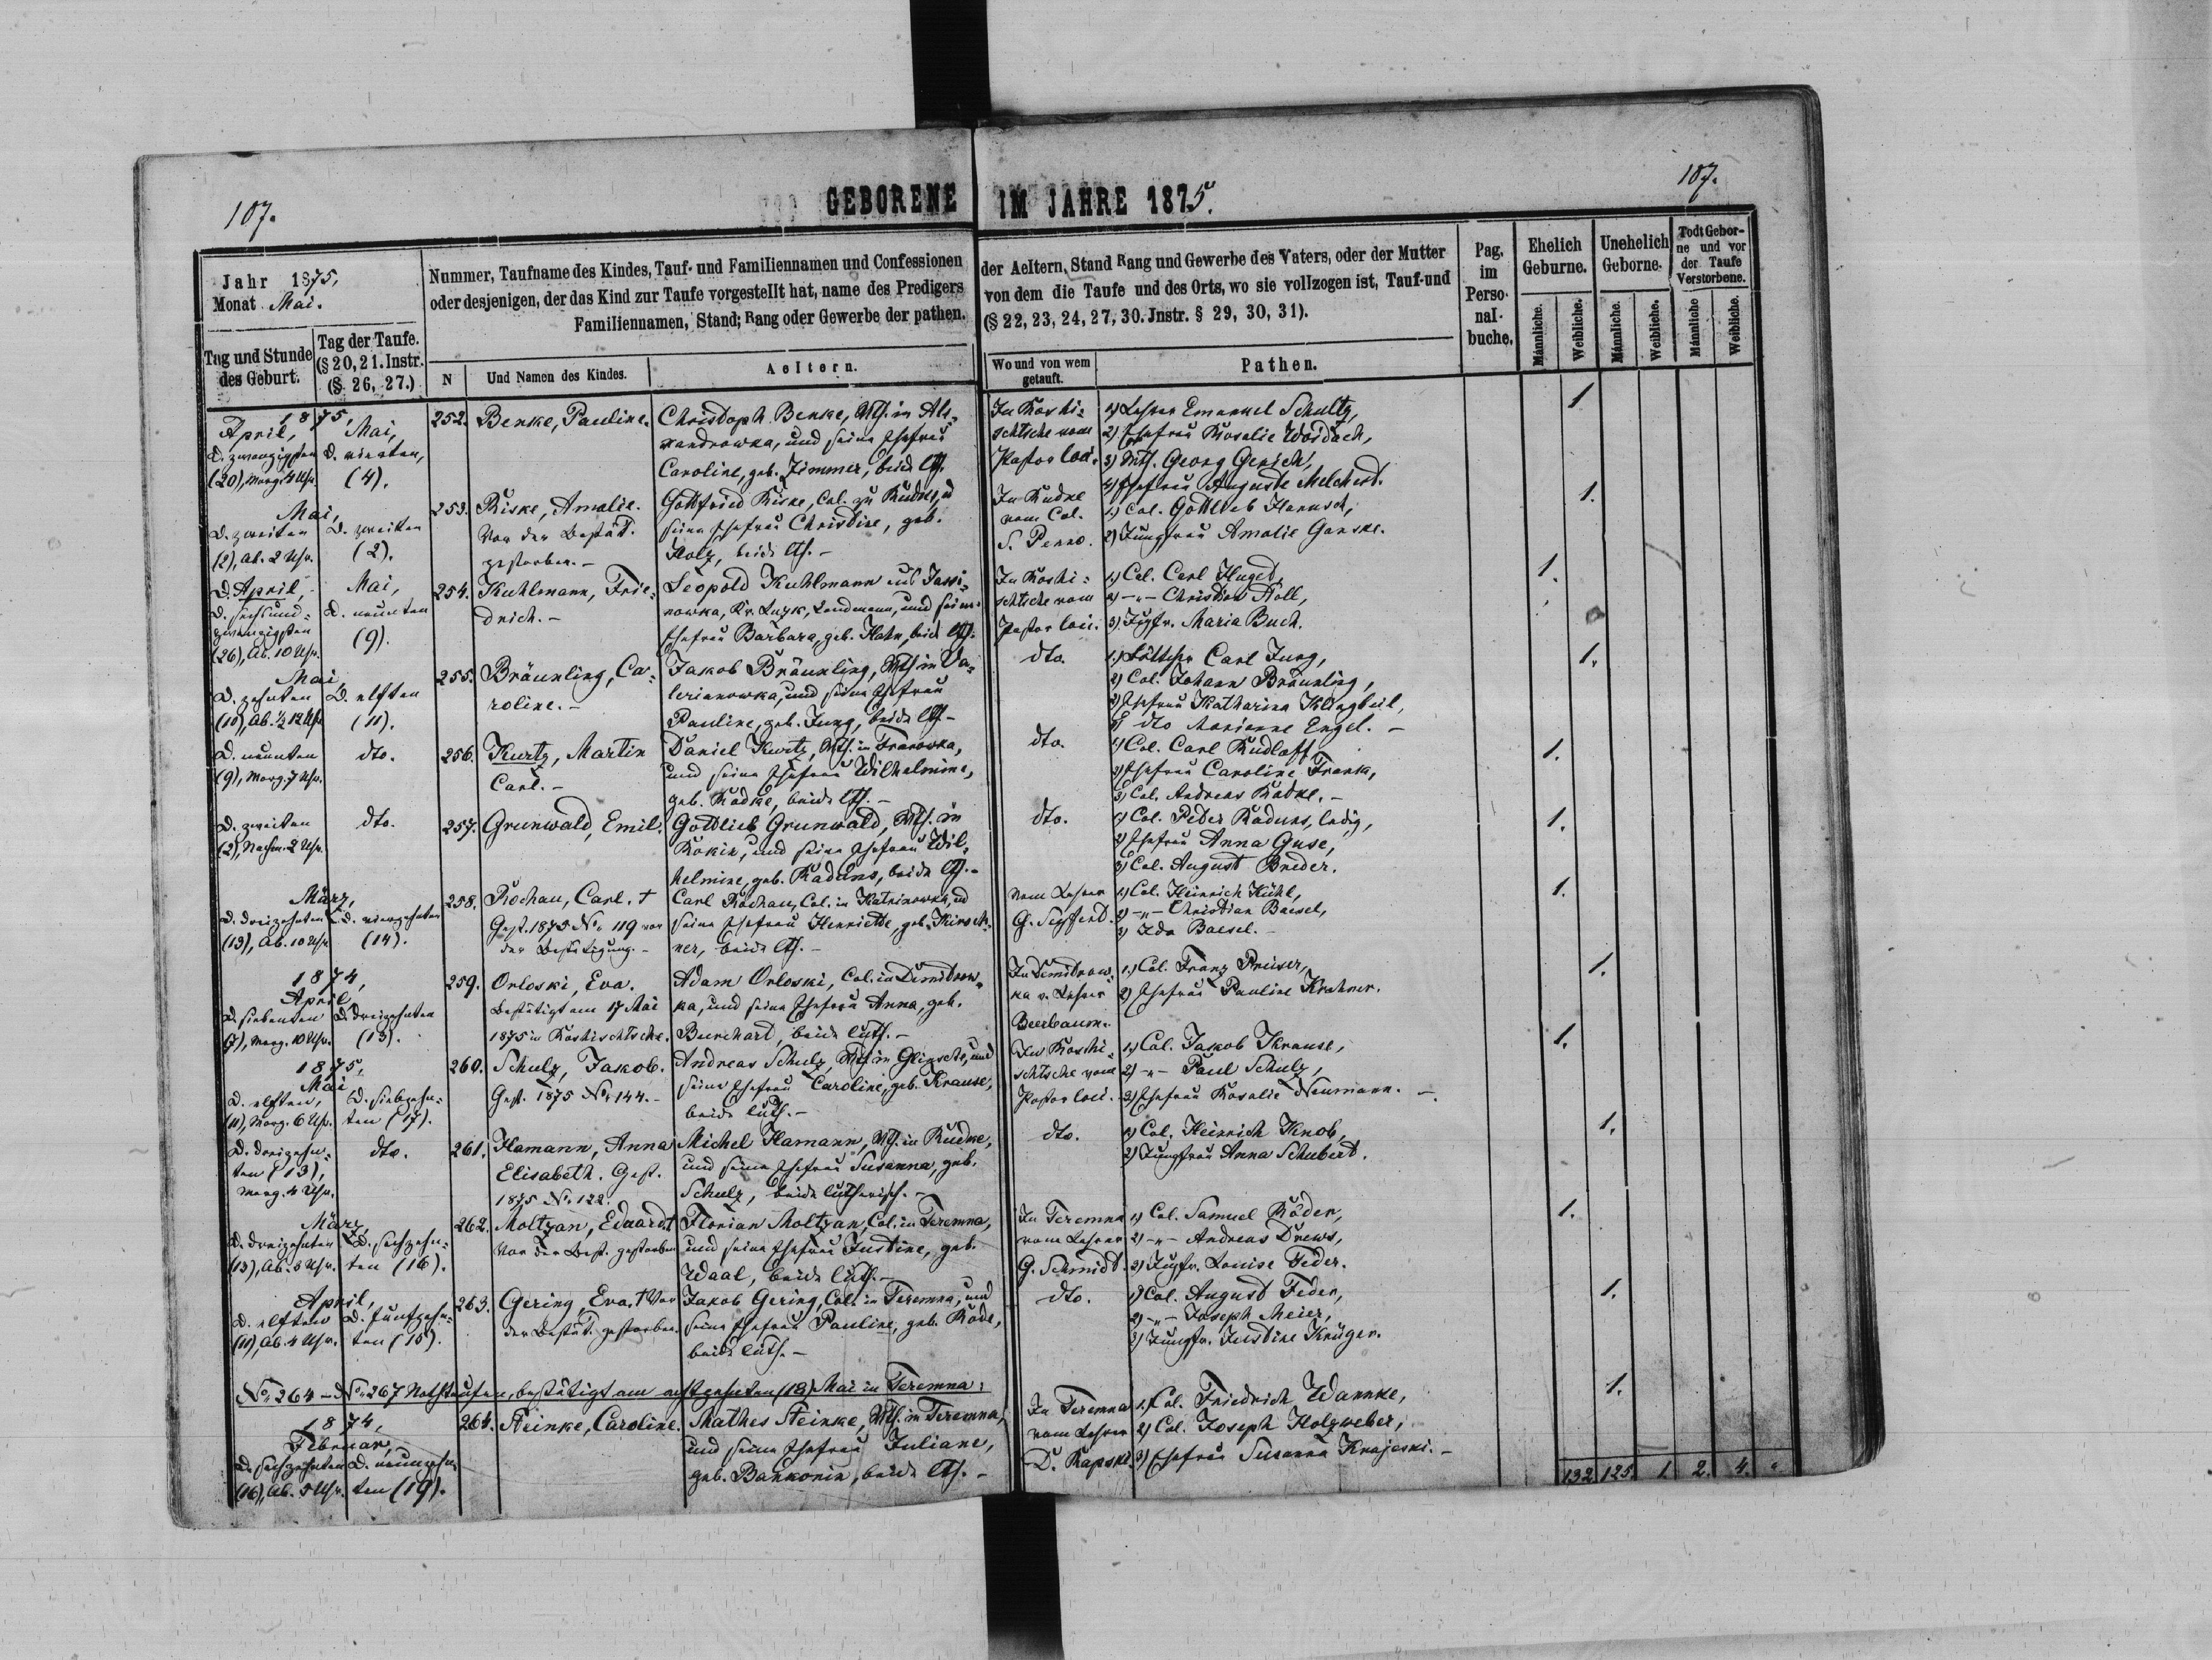 107.
107.
GEBORENE IM JAHRE 1875.
Jahr 1875,
Monat Mai.
Tag und Stunde des Geburt.
Tag der Taufe. (§ 20, 21. Instr. (§ 26, 27.)
Nummer, Taufname des Kindes, Tauf- und Familiennamen und Confessionen
oder desjenigen, der das Kind zur Taufe vorgestellt hat, name des Predigers
Familiennamen, Stand; Rang oder Gewerbe der pathen.
N
Und Namen des Kindes.
Aeltern.
der Aeltern, Stand Rang und Gewerbe des Vaters, oder der Mutter
von dem die Taufe und des Orts, wo sie vollzogen ist, Tauf-und
(§ 22, 23, 24, 27, 30. Jnstr. § 29, 30, 31).
Wo und von wem getauft.
Pathen.
Pag. im Perso- nal- buche.
Ehelich Geburne.
Unehelich Geborne.
Todt Gebor- ne und vor der Taufe Verstorbene.
Männliche.
Weibliche.
Männliche.
Weibliche.
Männliche
Weibliche.
1875,
April,
D. zwanzigsten
(20), Morg. 4 Uhr.
Mai,
D. vierten,
(4).
252.
Benke, Pauline.
Christoph Benke, Wth. in Ale-
xandrowka, und seine Ehefrau
Caroline, geb. Zimmer, beide lth.
In Koshi-
schtsche vom
Pastor loci.
1) Lehrer Emanuel Schultz,
2) Ehefrau Rosalie Woidach,
3) Wth. Georg Gerich,
4) Ehefrau Auguste Melchert.
1
Mai,
D. zweiten
(2), Ab. 2 Uhr.
D. zweiten
(2).
253.
Riske, Amalie.
Vor der Bestät.
gestorben. –
Gottfried Riske, Col. zu Rudke, u
seine Ehefrau Christine, geb.
Holz, beide lth. –
In Rudke
vom Col.
S. Penno.
1) Col. Gottlieb Hanusch,
2) Jungfrau Amalie Ganske.
1.
D. April,
D. sechsund-
zwanzigsten
(26), Ab. 10 Uhr.
Mai,
D. neunten
(9).
254.
Kuhlmann, Frie-
drich. –
Leopold Kuhlmann aus Jassi-
nowka, Kr. Luzk, Landmann, und seine
Ehefrau Barbara, geb. Hahn, beide lth.
In Koshi-
schtsche vom
Pastor loci.
1) Col. Carl Huget,
2) –„– Christian Noll,
3) Jgfr. Maria Buch.
1.
Mai,
D. zehnten
(10), Ab. ½ 12 Uhr
D. elften
(11).
255.
Bräunling, Ca-
roline. –
Jakob Bräunling, Wth. in Va-
lerianowka, und seine Ehefrau
Pauline, geb. Jung, beide lth –
dto.
1.) Böttcher Carl Jung,
2) Col. Johann Bräunling,
3) Ehefrau Katharina Klingbeil,
4) dto Marianne Engel. –
1.
D. neunten
(9), Morg. 7 Uhr.
dto.
256.
Kurtz, Martin
Carl. –
Daniel Kurtz, Wth. in
und seine Ehefrau Wilhelmine,
geb. Radke, beide lth. –
dto.
1) Col. Carl Rudlaff,
2) Ehefrau Caroline Frank,
3) Col. Andreas Radke. –
1.
D. zweiten
(2), Nachm. 2 Uhr.
dto.
257.
Grunwald, Emil.
Gottlieb Grunwald, Wth. in
Rokin, und seine Ehefrau Wil-
helmine, geb. Raduns, beide lth. –
dto.
1) Col. Peter Raduns, ledig,
2) Ehefrau Anna Guse,
3) Col. August Breder.
1.
März,
D. dreizehnten
(13), Ab. 10 Uhr
D. vierzehnten
(14).
258.
Rochau, Carl. †
Gest. 1875 No. 119 vor
der Bestätigung. –
Carl Rochau, Col. in Katrinowka, u
seine Ehefrau Henriette, geb. Kirsch-
ner, beide lth. –
vom Lehrer
G. Seyffert.
1) Col. Heinrich Kühl,
2) –„– Christian Baesel,
3) Ida Baesel. –
1.
1874,
April,
D. siebenten
(7), Morg. 10 Uhr.
D. dreizehnten
(13).
259.
Orloski, Eva.
Bestätigt am 17 Mai
1875 in Koshischtsche.
Adam Orloski, Col. in Dimitrow-
ka, und seine Ehefrau Anna, geb.
Burchart, beide luth. –
In Dimitrow-
ka v. Lehrer
Beerbaum.
1.) Col. Franz Preiser,
2) Ehefrau Pauline Krahner.
1.
1875,
Mai,
D. elften,
(11), Morg. 6 Uhr.
D. siebzehn-
ten (17).
260.
Schulz, Jakob.
Gest. 1875 No. 144. –
Andreas Schulz, Wth. in und
seine Ehefrau Caroline, geb. Krause,
beide luth. –
In Koshi-
schtsche vom
Pastor loci.
1.) Col. Jakob Krause,
2) –„– Paul Schulz,
3) Ehefrau Rosalie Neumann. –
1.
D. dreizehn-
ten (13),
Morg. 4 Uhr.
dto.
261.
Hamann, Anna
Elisabeth. Gest.
1875 No. 122.
Michel Hamann, Wth. in Rudke,
und seine Ehefrau Susanna, geb.
Schulz, beide lutherisch. –
dto.
1) Col. Heinrich Knob,
2) Jungfrau Anna Schubert.
1.
März,
D. dreizehnten
(13), Ab. 8 Uhr.
D. sechzehn-
ten (16).
262.
Moltzan, Eduard. †
Vor der Best. gestorben
Florian Moltzan, Col. in Teremna,
und seine Ehefrau Justine, geb.
Waal, beide luth. –
In Teremna
vom Lehrer
G. Schmidt.
1) Col. Samuel Röder,
2) –„– Andreas Drews,
3) Jugfr. Louise Feder.
1.
April,
D. elften
(11), Ab. 4 Uhr.
D. fünfzehn-
ten (15).
263.
Gering, Eva. † Vor
der Bestät. gestorben.
Jakob Gering, Col. in Teremna, und
seine Ehefrau Pauline, geb. Rode,
beide luth. –
dto.
1) Col. August Feder,
2) –„– Joseph Meier,
3) Jungfr. Justine Krüger.
1.
No. 264 – No. 267 Nothtaufen, bestätigt am achtzehnten (18) Mai in Teremna:
1874,
Februar,
D. sechzehnten
(16), Ab. 5 Uhr.
D. neunzehn-
ten (19).
264.
Steinke, Caroline.
Mathes Steinke, Wth. in Teremna,
und seine Ehefrau Juliane,
geb. Bankonin, beide lth. –
In Teremna
vom Lehrer
D. Rapski.
1. Col. Friedrich Wannke,
2) Col. Joseph Holzweber,
3) Ehefrau Susanna Krajeski. –
1.
132 125. 1. 2. 4. "